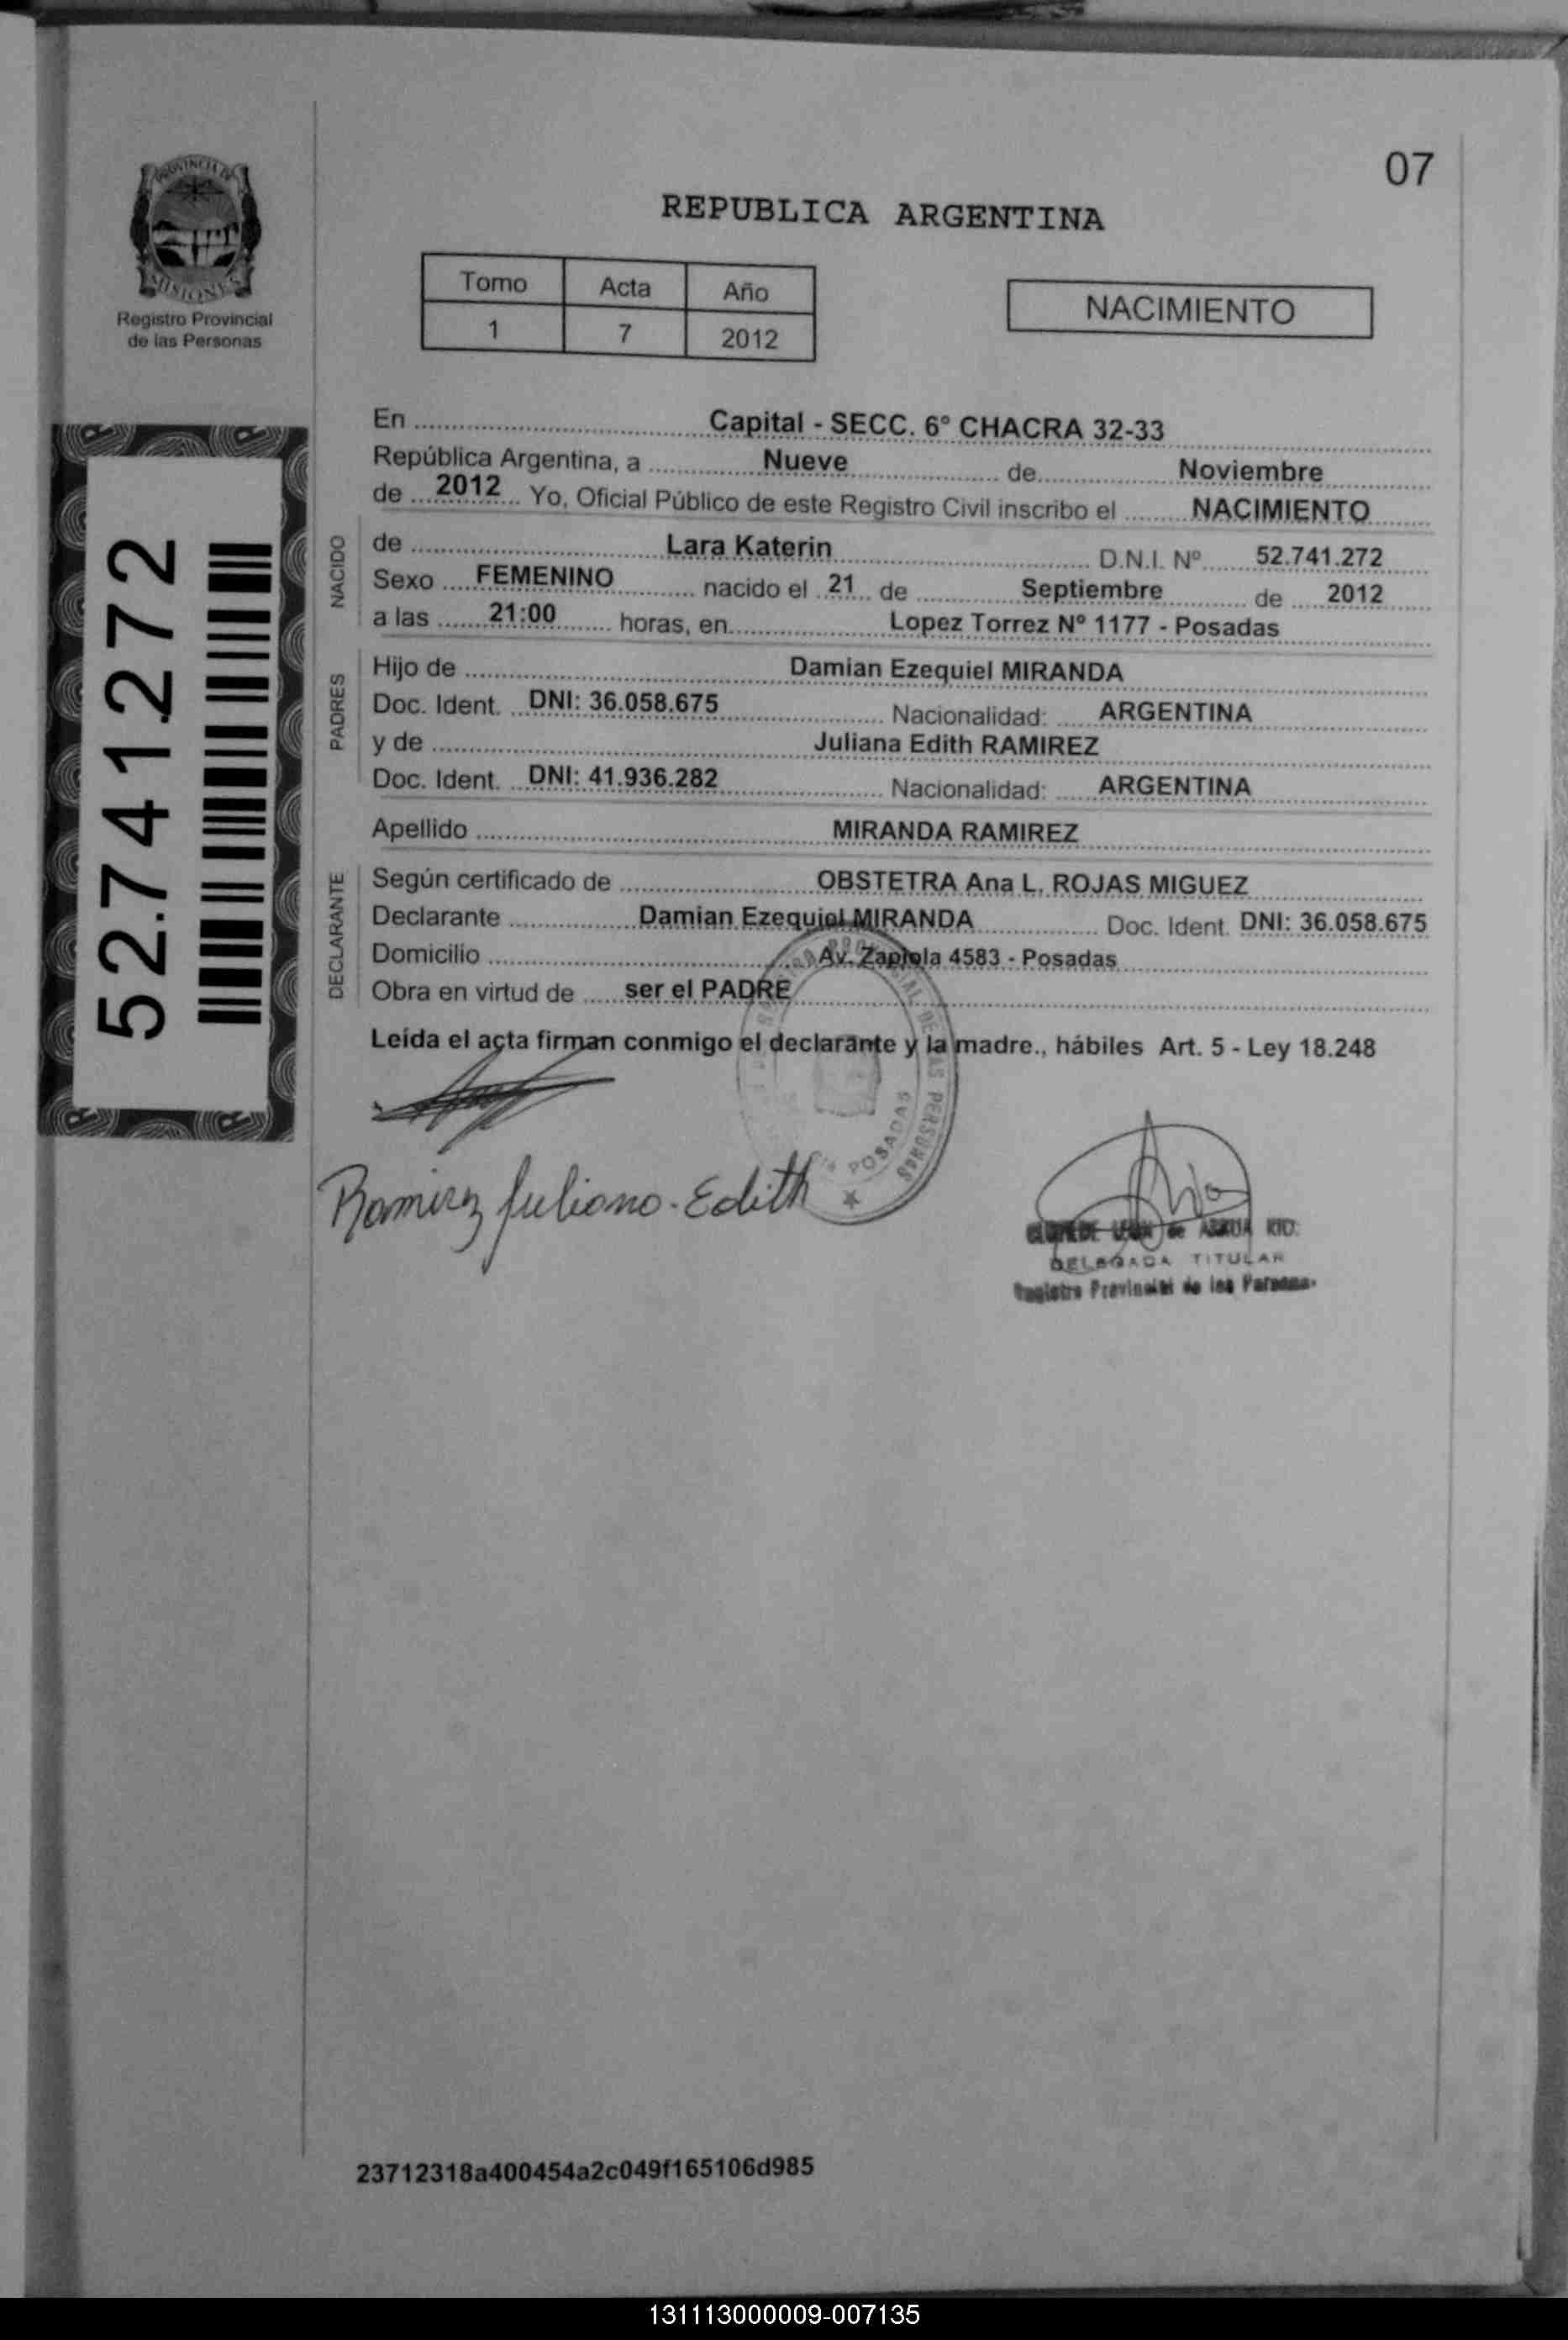 07
PROVINCIA DE
MISIONES
Registro Provincial
de las Personas
REPUBLICA ARGENTINA
Tomo Acta Año
1 7 2012
NACIMIENTO
52.741.272
En Capital - SECC. 6º CHACRA 32-33
República Argentina, a Nueve de Noviembre
de 2012 Yo, Oficial Público de este Registro Civil inscribo el NACIMIENTO
NACIDO
de Lara Katerin D.N.I. Nº 52.741.272
Sexo FEMENINO nacido el 21 de Septiembre de 2012
a las 21:00 horas, en Lopez Torrez Nº 1177 - Posadas
PADRES
Hijo de Damian Ezequiel MIRANDA
Doc. Ident. DNI: 36.058.675 Nacionalidad: ARGENTINA
y de Juliana Edith RAMIREZ
Doc. Ident. DNI: 41.936.282 Nacionalidad: ARGENTINA
Apellido MIRANDA RAMIREZ
DECLARANTE
Según certificado de OBSTETRA Ana L. ROJAS MIGUEZ
Declarante Damian Ezequiel MIRANDA Doc. Ident. DNI: 36.058.675
Domicilio Av. Zapiola 4583 - Posadas
Obra en virtud de ser el PADRE
Leída el acta firman conmigo el declarante y la madre., hábiles Art. 5 - Ley 18.248
DE LAS PERSONAS
POSADAS
Ramirez Juliana. Edith
DELEGADA TITULAR
Registro Provincial de las Personas
23712318a400454a2c049f165106d985
131113000009-007135